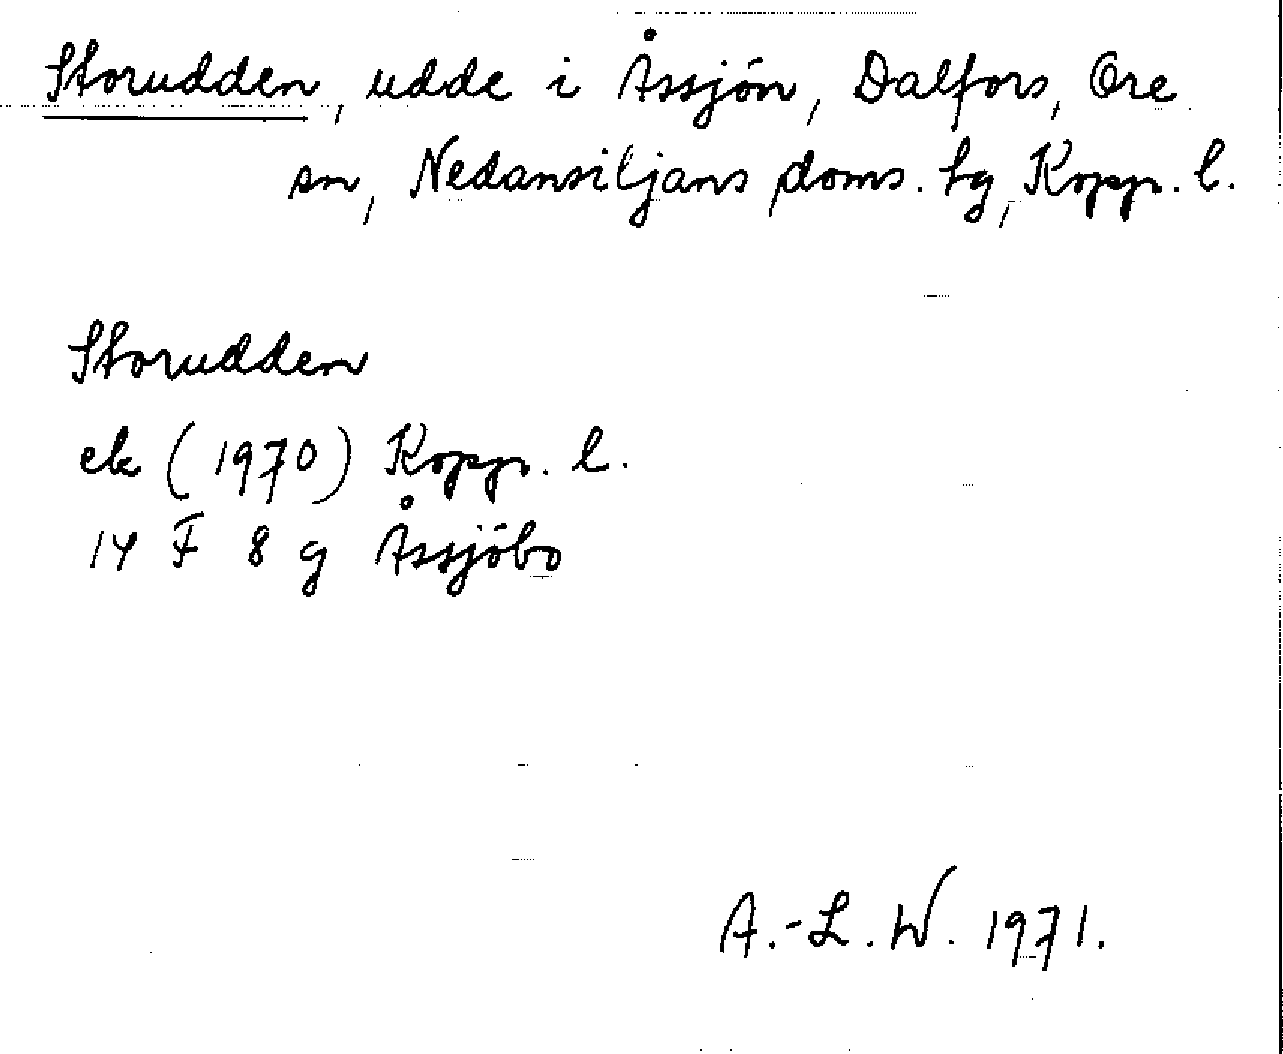 Storudden, udde i Åssjön, Dalfors, Ore
sn, Nedansiljans doms. hg, Kopp. l.
Storudden
ek (1970) Kopp. l.
14 F 8 g Åssjöbo
A.-L. W. 1971.